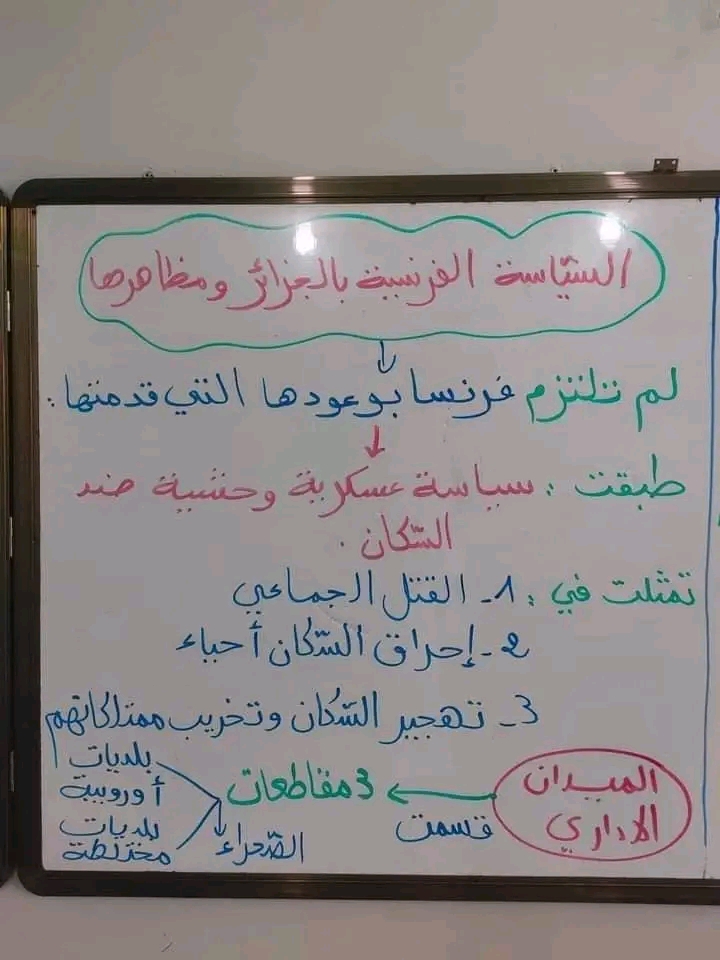 السّياسة الفرنسية بالجزائر ومظاهرها
لم تلتزم فرنسا بوعودها التي قدمتها:
طبقت: سياسة عسكرية وحشية ضد
السّكان.
تمثلت في: 1- القتل الجماعي
2- إحراق السّكان أحياء
3- تهجير السّكان وتخريب ممتلكاتهم
الميدان الاداري
قسمت
3 مقاطعات
بلديات أوروبية
الصّحراء
بلديات مختلطة